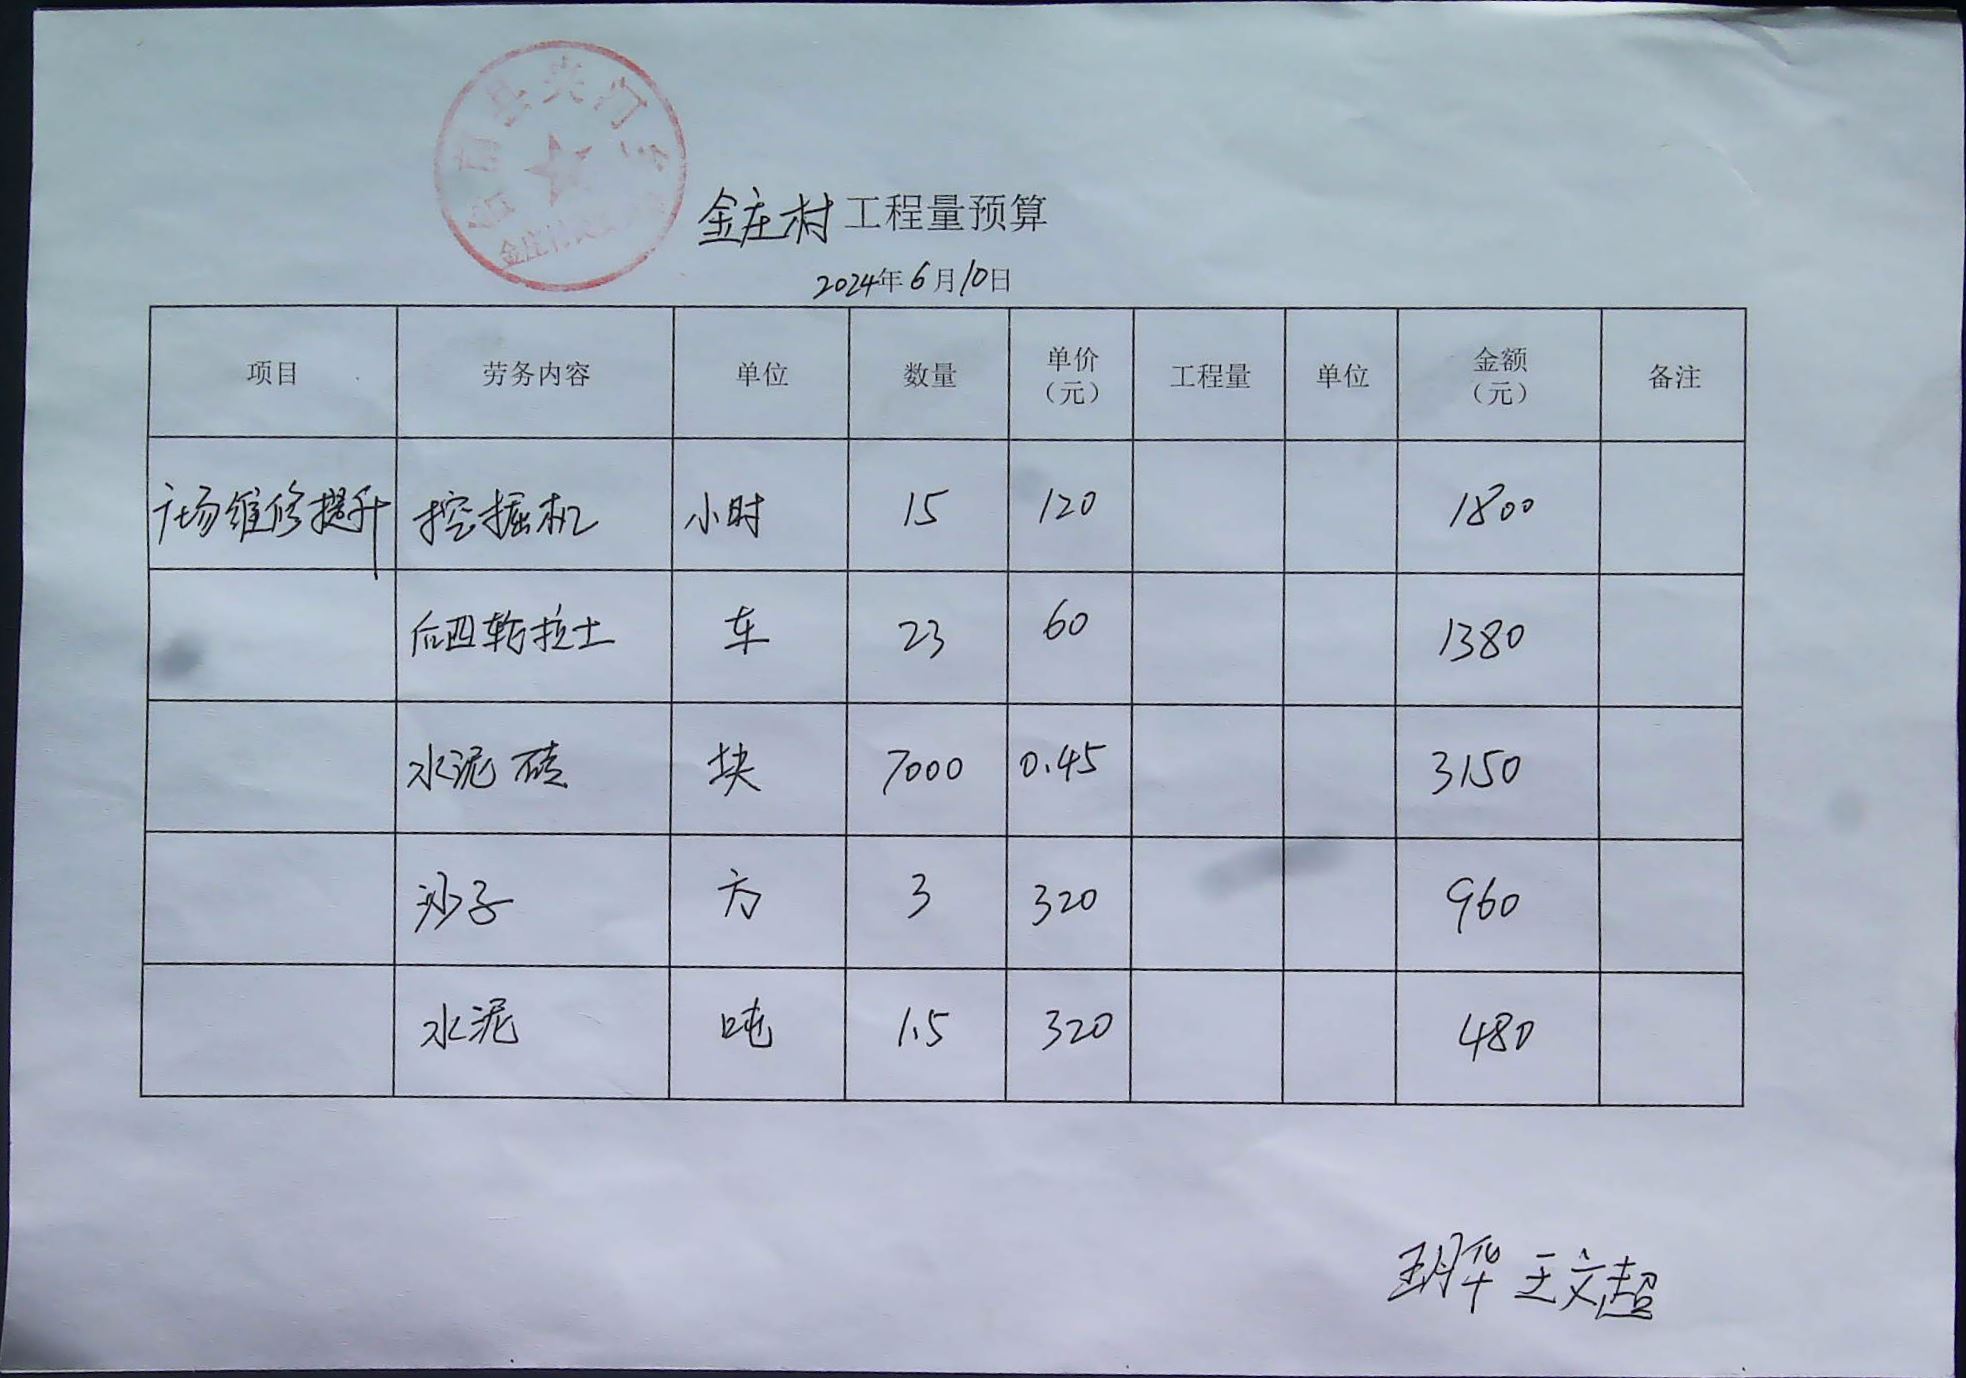 南县夹河乡
金庄村
金庄村工程量预算
2024年6月10日
项目 劳务内容 单位 数量 单价（元） 工程量 单位 金额（元） 备注
广场维修提升 挖掘机 小时 15 120 1800
后四轮拉土 车 23 60 1380
水泥砖 块 7000 0.45 3150
沙子 方 3 320 960
水泥 吨 1.5 320 480
王明华 王文超